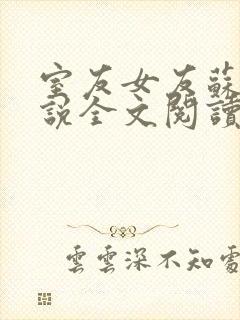 室友女友蘇
說全文閱讀
雲雲深不知處